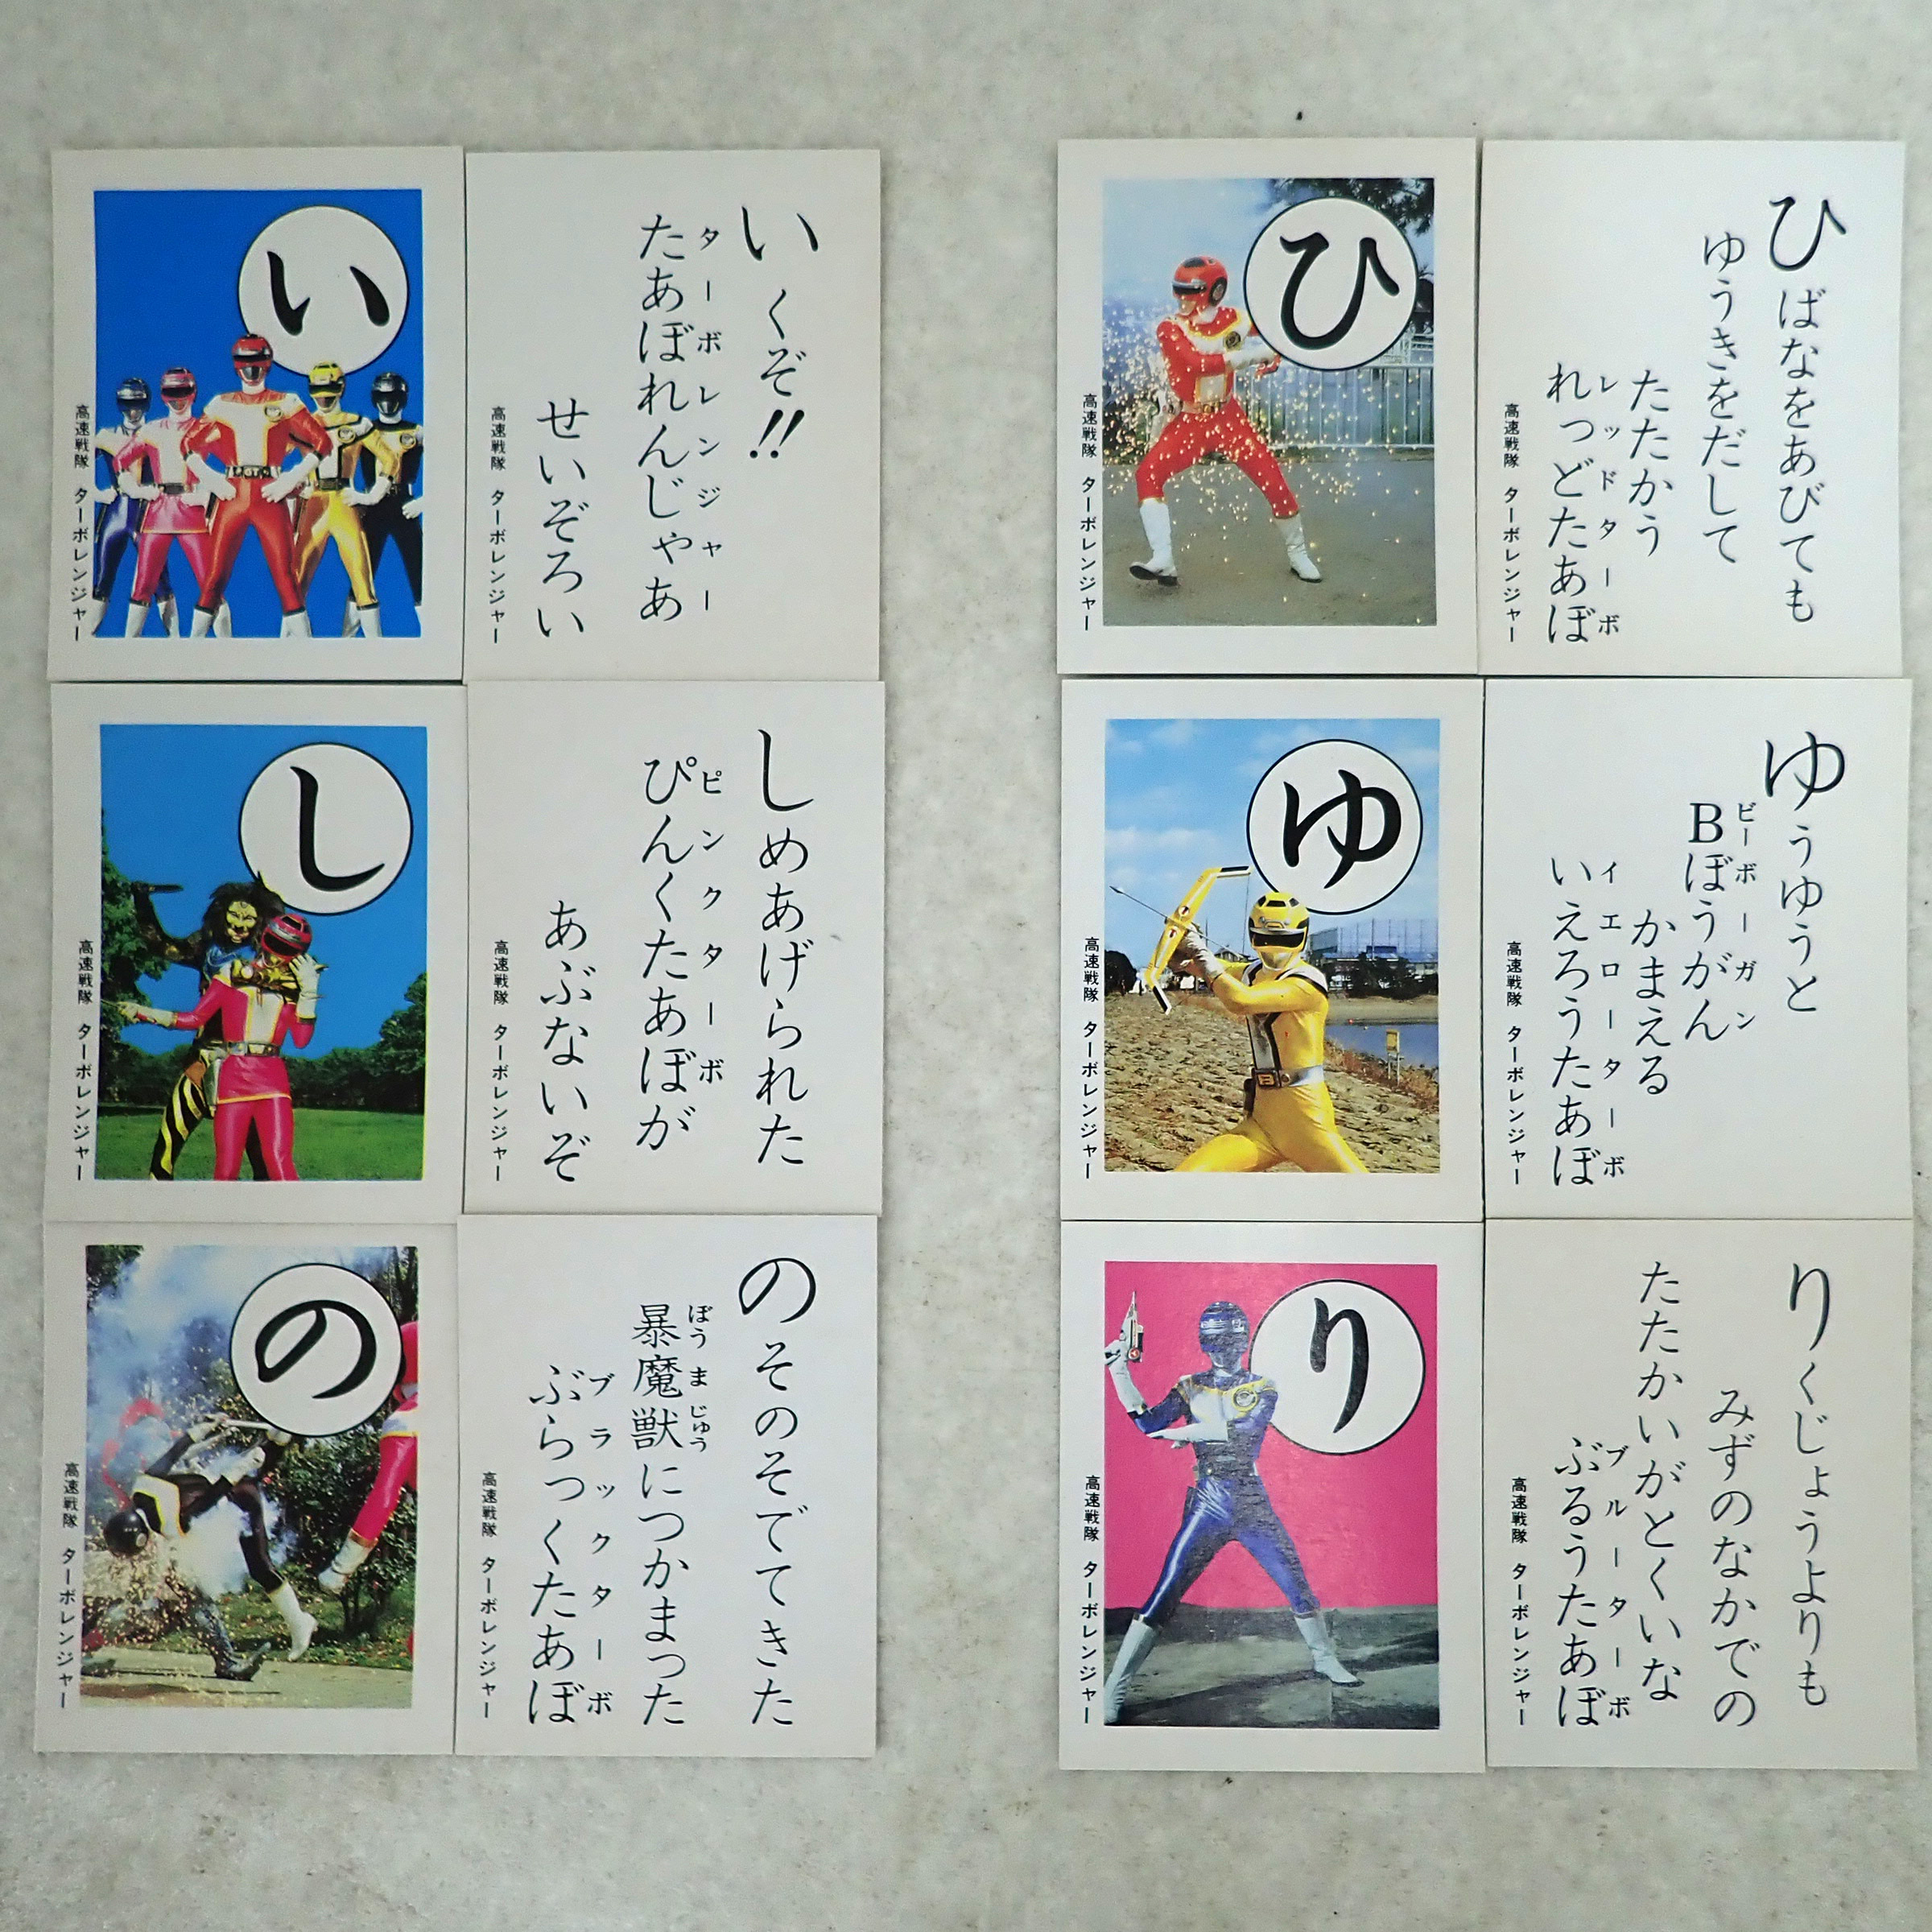 い
高速戦隊 ターボレンジャー
いくぞ!!
たあぼれんじゃあ
ターボレンジャー
せいぞろい
高速戦隊 ターボレンジャー
し
高速戦隊 ターボレンジャー
しめあげられた
ぴんくたあぼが
ピンクターボ
あぶないぞ
高速戦隊 ターボレンジャー
の
高速戦隊 ターボレンジャー
のそのそでてきた
暴魔獣につかまった
ぼうまじゅう
ぶらっくたあぼ
ブラックターボ
高速戦隊 ターボレンジャー
ひ
高速戦隊 ターボレンジャー
ひばなをあびても
ゆうきをだして
たたかう
れっどたあぼ
レッドターボ
高速戦隊 ターボレンジャー
ゆ
高速戦隊 ターボレンジャー
ゆうゆうと
Bぼうがん
ビーボーガン
かまえる
いえろうたあぼ
イエローターボ
高速戦隊 ターボレンジャー
り
高速戦隊 ターボレンジャー
りくじょうよりも
みずのなかでの
たたかいがとくいな
ぶるうたあぼ
ブルーターボ
高速戦隊 ターボレンジャー